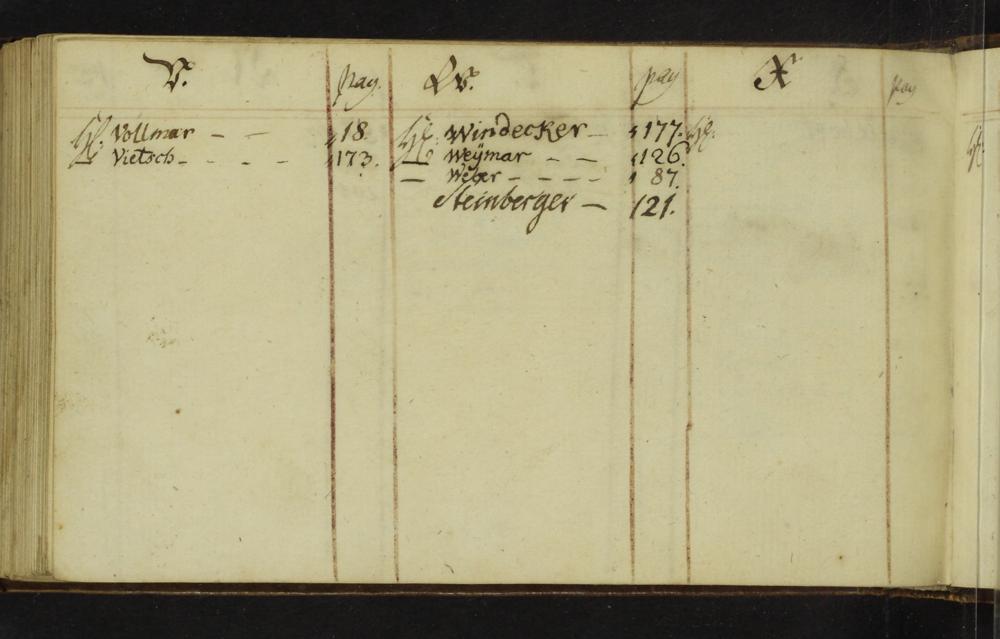 V.
pag.
Vollmar - - 18.
Vietsch - - - - 173.
W.
pag
Windecker - 177.
Weÿmar - - 126.
— Weber - - - - 87.
Steinberger — 121.
X
pag